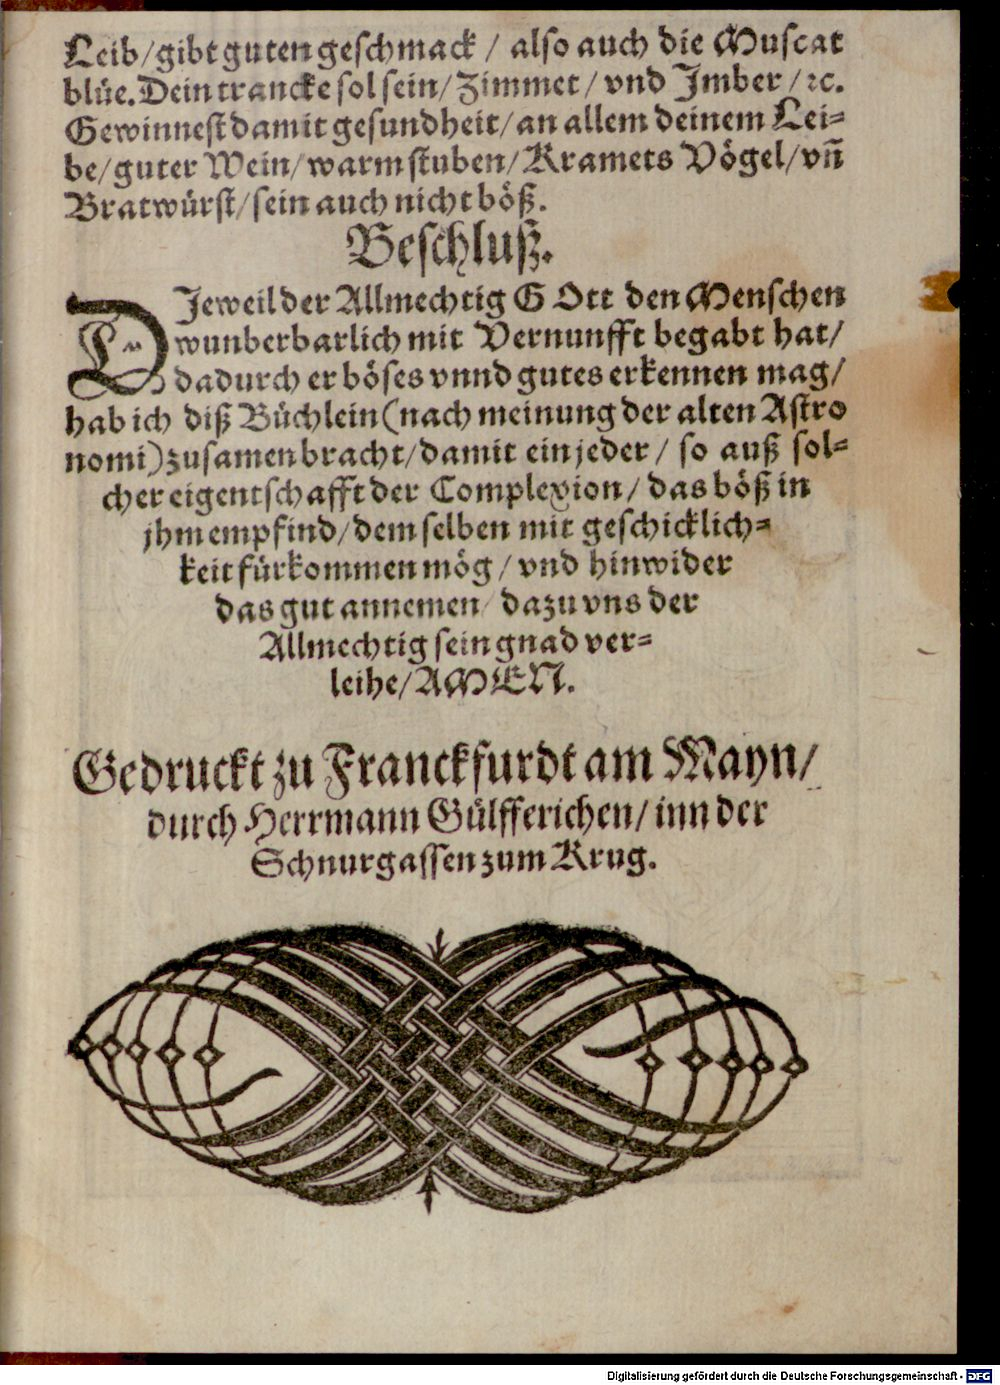 Leib/gibt guten geschmack / also auch die Muscat
blüe. Dein trancke sol sein/ Zimmet / vnd Jmber / ꝛc.
Gewinnest damit gesundheit/ an allem deinem Lei⸗
be/guter Wein/ warm stuben/ Kramets Vögel/ vñ
Bratwürst/ sein auch nicht böß.
Beschluß.
DJeweil der Allmechtig GOtt den Menschen
wunberbarlich mit Vernunfft begabt hat/
dadurch er böses vnnd gutes erkennen mag/
hab ich diß Büchlein (nach meinung der alten Astro
nomi) zusamen bracht/ damit ein jeder / so auß sol⸗
cher eigentschafft der Complexion/ das böß in
jhm empfind/ dem selben mit geschicklich⸗
keit fürkommen mög / vnd hinwider
das gut annemen/ dazu vns der
Allmechtig sein gnad ver⸗
leihe/ AMEN.
Gedruckt zu Franckfurdt am Mayn/
durch Herrmann Gülfferichen/ inn der
Schnurgassen zum Krug.
Digitalisierung gefördert durch die Deutsche Forschungsgemeinschaft - DFG